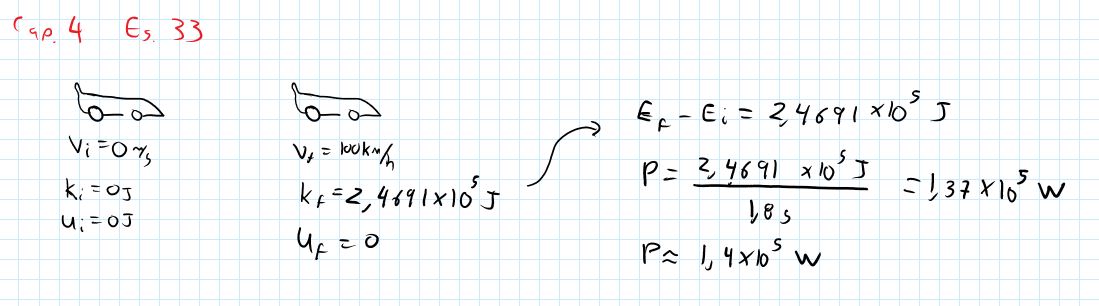 Cap. 4 Es. 33
Vi = 0 m/s
Ki = 0J
Ui = 0J
Vf = 100 km/h
Kf = 2,4691 × 10⁵ J
Uf = 0
Ef - Ei = 2,4691 × 10⁵ J
P = 2,4691 × 10⁵ J / 1,8 s = 1,37 × 10⁵ W
P ≈ 1,4 × 10⁵ W